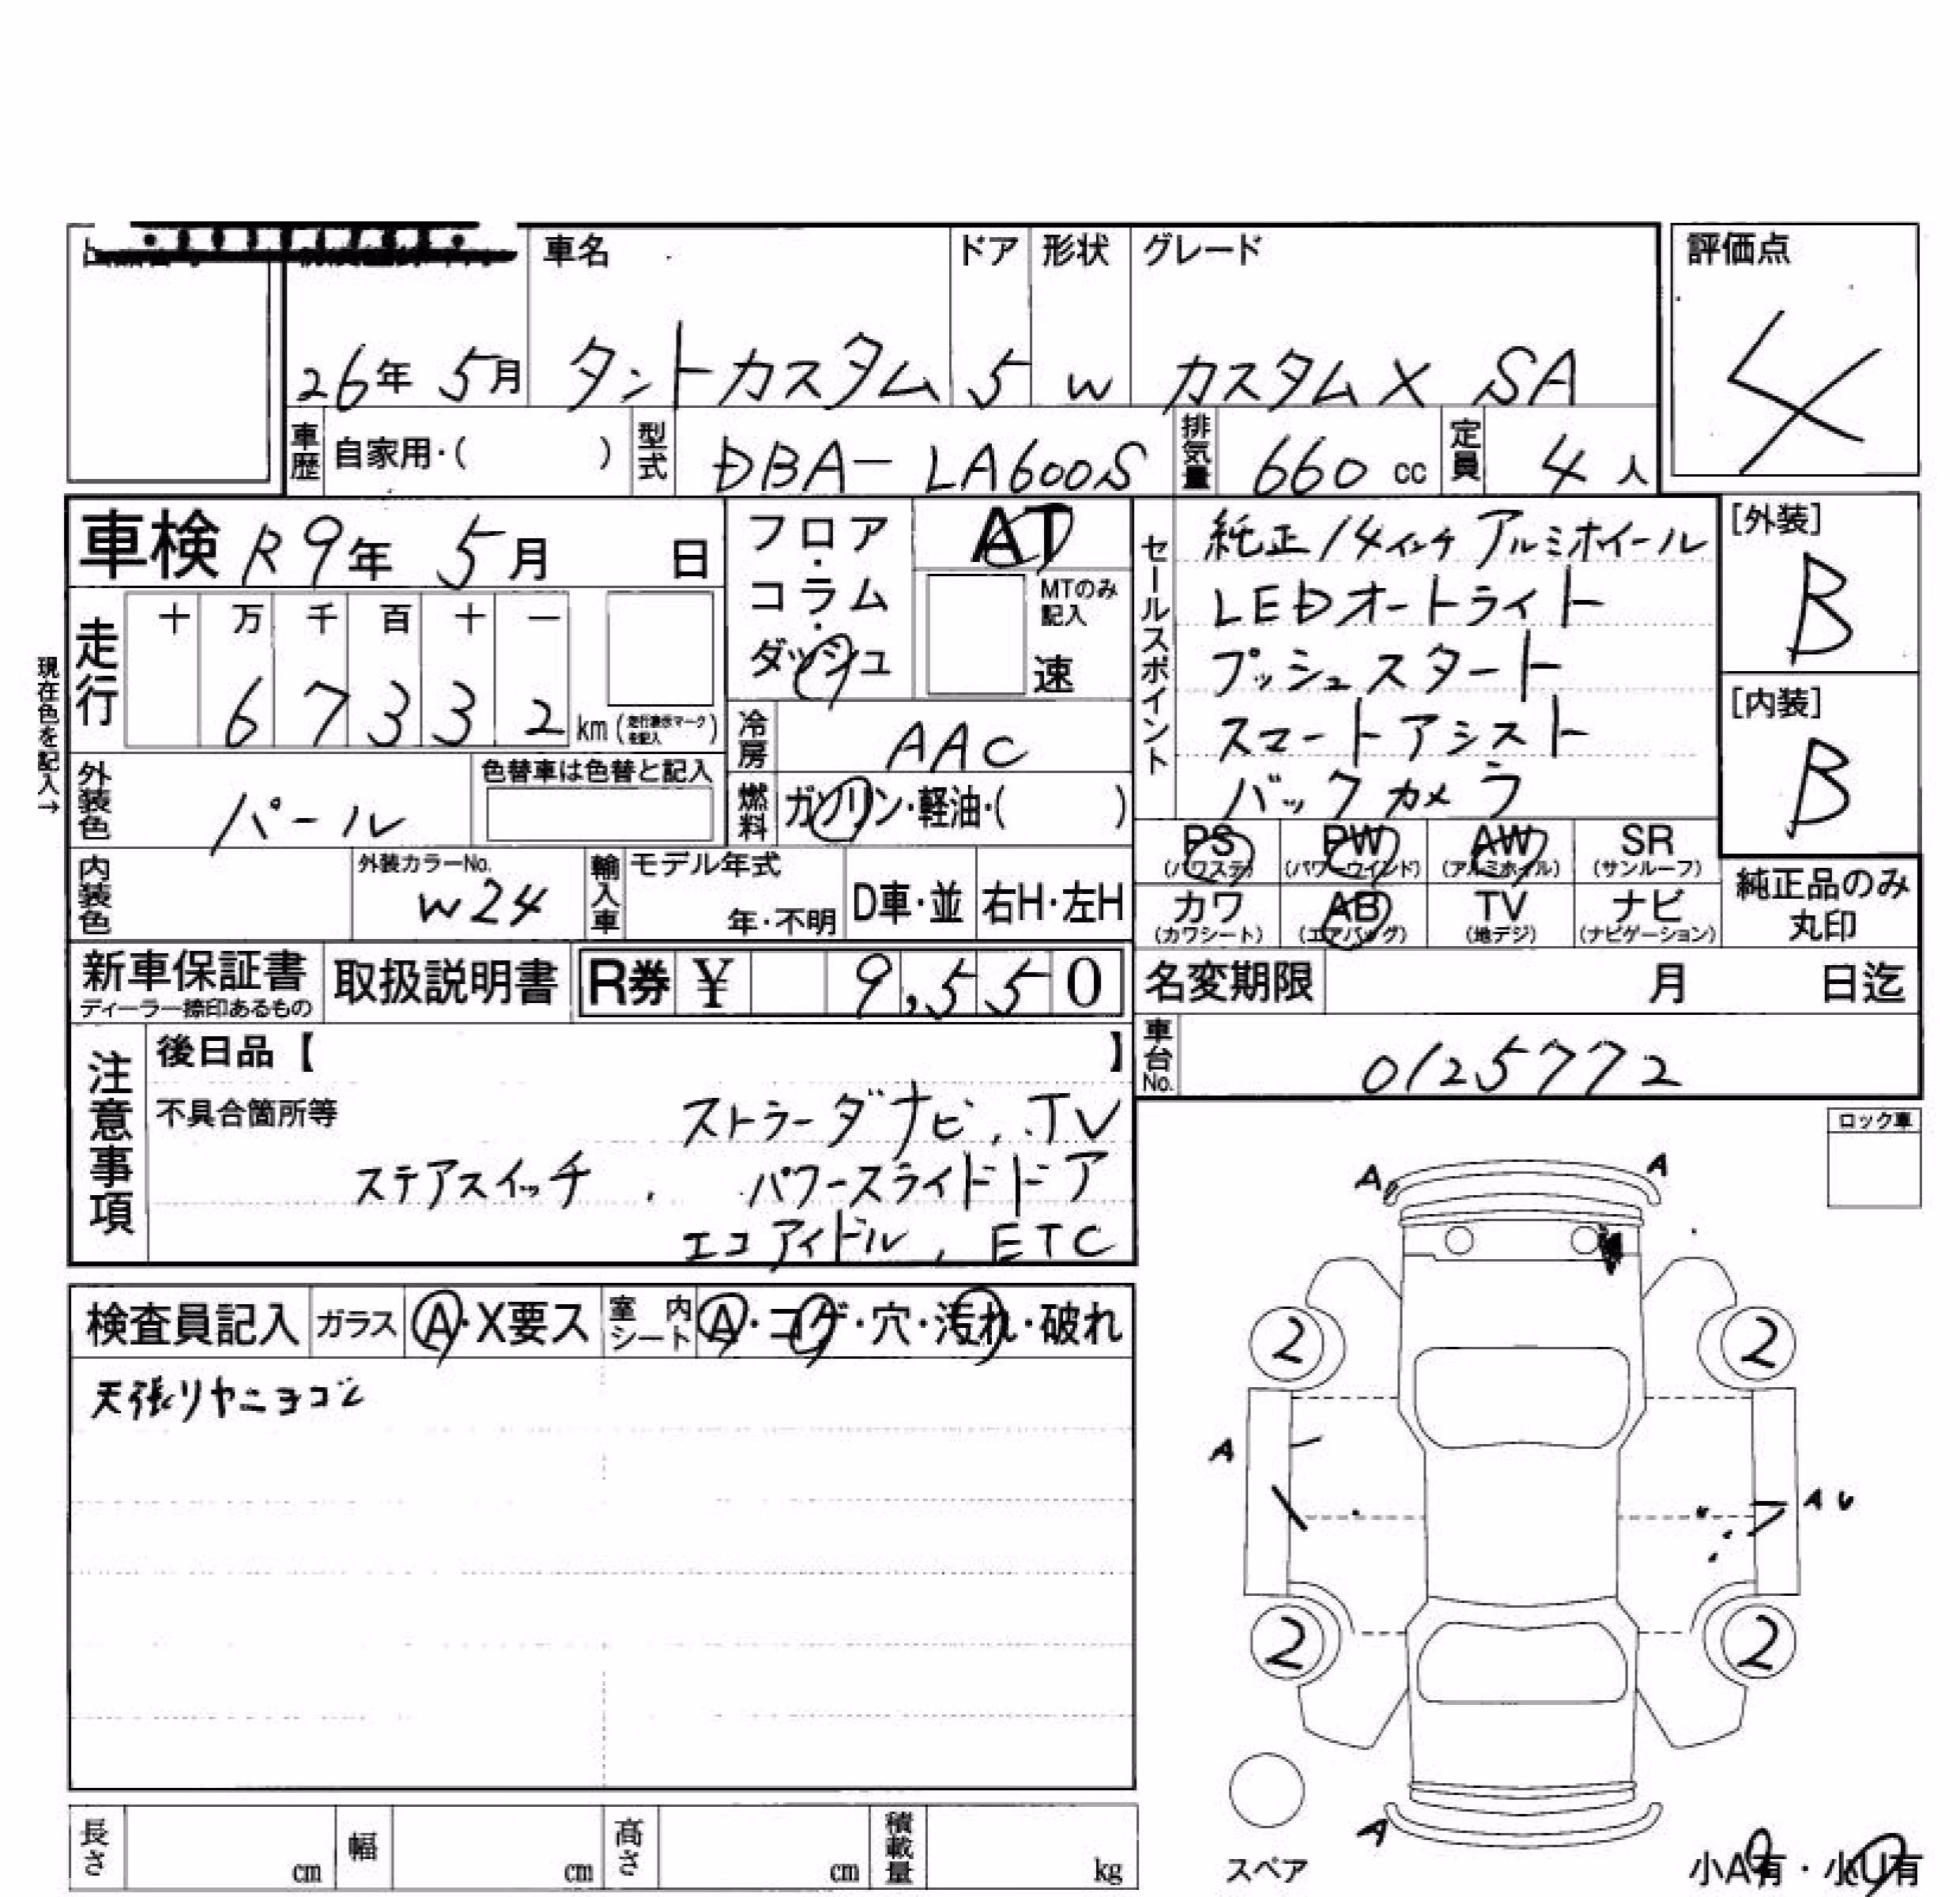 車名 ドア 形状 グレード 評価点
26年 5月 タントカスタム 5 W カスタムX SA 4
車歴 自家用・( ) 型式 DBA-LA600S 排気量 660 cc 定員 4 人
車検 R9年 5月 日
フロア・コラム・ダッシュ
AT
MTのみ記入
速
セールスポイント
純正14インチアルミホイール
LEDオートライト
プッシュスタート
スマートアシスト
バックカメラ
[外装]
B
[内装]
B
現在色を記入→
走行 十 万 千 百 十 一
6 7 3 3 2 km (走行表示マークを記入)
冷房 AAC
外装色 パール 色替車は色替と記入
燃料 ガソリン・軽油・( )
PS (パワステ) PW (パワーウインド) AW (アルミホイール) SR (サンルーフ)
カワ (カワシート) AB (エアバッグ) TV (地デジ) ナビ (ナビゲーション)
純正品のみ
丸印
内装色 外装カラーNo. W24 輸入車 モデル年式 年・不明 D車・並 右H・左H
新車保証書 ディーラー捺印あるもの 取扱説明書 R券 ¥ 9,550
名変期限 月 日迄
車台No. 0125772
注意事項
後日品【 】
不具合箇所等 ストラーダナビ, TV
ステアスイッチ, パワースライドドア
エコアイドル, ETC
ロック車
検査員記入 ガラス A・X要ス 室内シート A・コゲ・穴・汚れ・破れ
天張リヤニヨゴレ
A A
2 2
A A U
2 2
A
スペア
小A有・小U有
長さ cm 幅 cm 高さ cm 積載量 kg